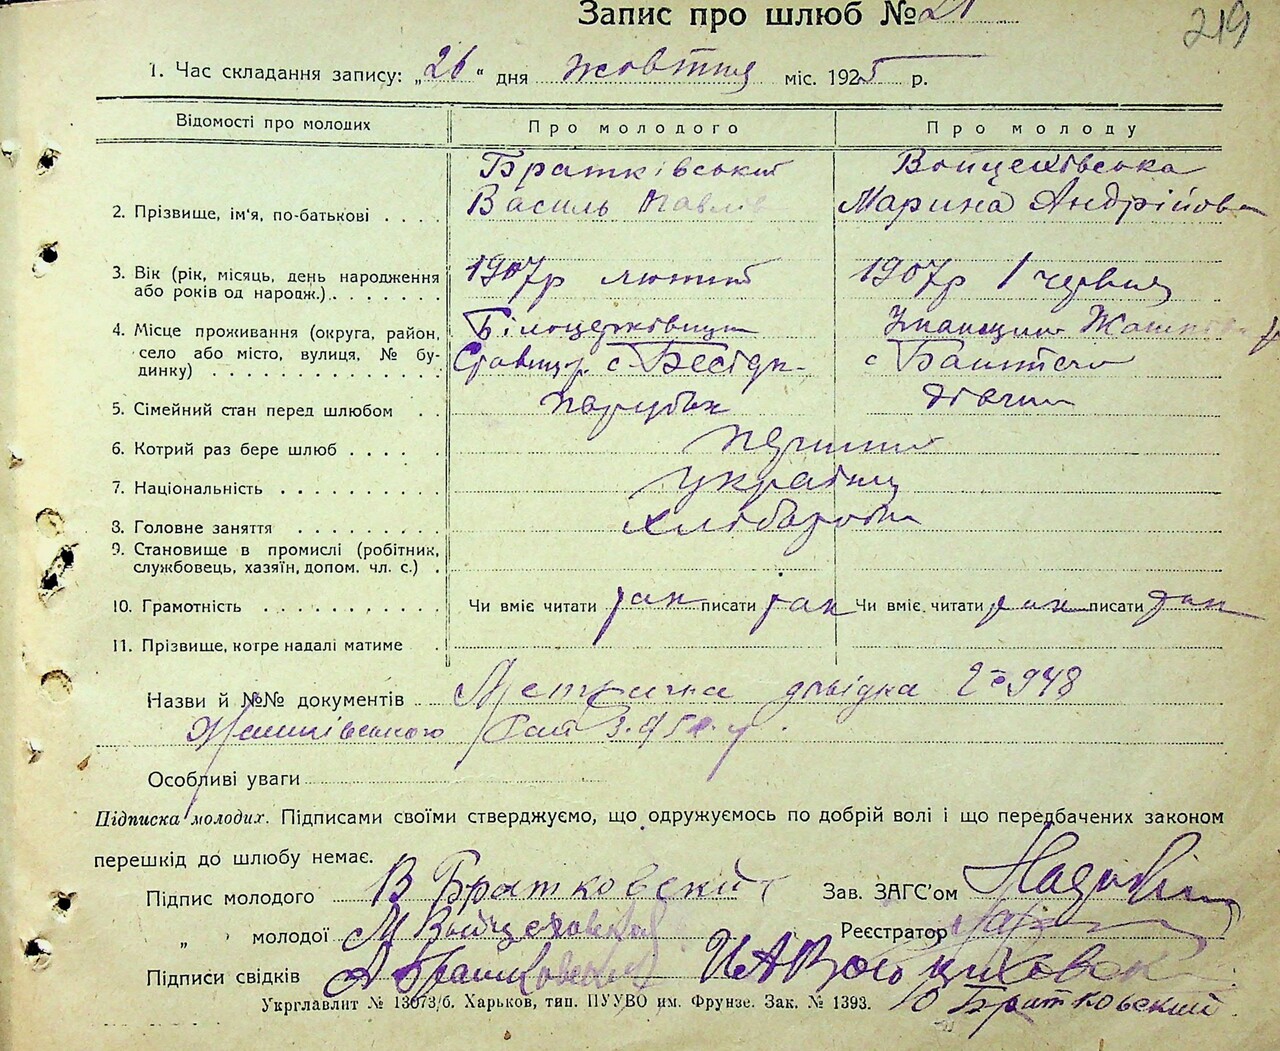 Запис про шлюб № 21
219
1. Час складання запису: „26" дня жовтня міс. 1925 р.
Відомості про молодих Про молодого Про молоду
Братківський Войцехівська
2. Прізвище, ім'я, по-батькові . . . . Василь Павлів Марина Андрійовн
3. Вік (рік, місяць, день народження 1907р лютий 1907р 1 червня
або років од народж.)
4. Місце проживання (округа, район, Білоцерківщин Уманщина Жашків
село або місто, вулиця, № бу- Ставищ. р. с. Бесідк- с Баштеч
динку)
5. Сімейний стан перед шлюбом . . Парубок дівчина
6. Котрий раз бере шлюб . . . . перший
7. Національність україн
8. Головне заняття хлібороби
9. Становище в промислі (робітник,
службовець, хазяїн, допом. чл. с.) .
10. Грамотність Чи вміє читати так писати так Чи вміє читати так писати так
11. Прізвище, котре надалі матиме
Назви й №№ документів Метрична довідка 948
Жашківського
Особливі уваги
Підписка молодих. Підписами своїми стверджуємо, що одружуємось по добрій волі і що передбачених законом
перешкід до шлюбу немає.
Підпис молодого В Братковский Зав. ЗАГС'ом
„ молодої М Войцеховская Реєстратор
Підписи свідків А Братковский И А Войциховский
Укрглавлит № 13073/б. Харьков, тип. ПУУВО им. Фрунзе. Зак. № 1393. Ю Братковский